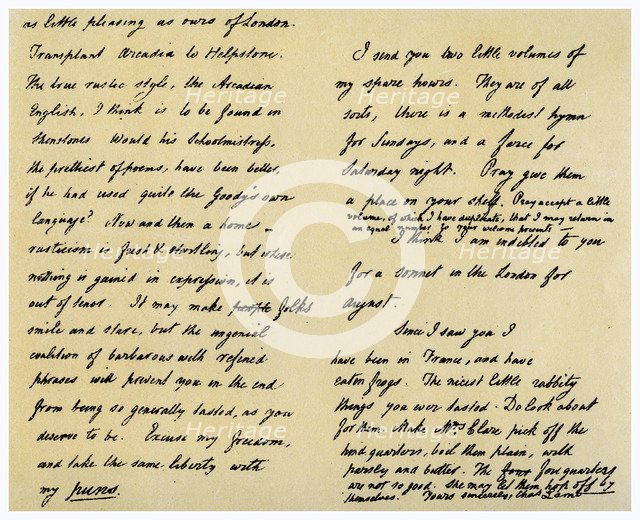 as little pleasing as ours of London.
Transplant Arcadia to Helpstone.
The true rustic style, the Arcadian
English, I think is to be found in
Shenstones Would his Schoolmistress,
the prettiest of poems, have been better,
if he had used quite the Goody's own
language? Now and then a home
rusticism is fresh & startling, but where
nothing is gained in expression, it is
out of tenor. It may make people folks
smile and stare, but the ungenial
coalition of barbarous with refined
phrases will prevent you in the end
from being so generally tasted, as you
deserve to be. Excuse my freedom,
and take the same liberty with
my puns.
I send you two little volumes of
my spare hours. They are of all
sorts, there is a methodist hymn
for Sundays, and a farce for
Saturday night. Pray give them
a place on your shelf. Pray accept a little
volume, of which I have duplicate, that I may return in
an equal number to your welcome presents —
I think I am indebted to you
for a sonnet in the London for
August.
Since I saw you I
have been in France, and have
eaten frogs. The nicest little rabbity
things you ever tasted. Do look about
for them. Make Mrs Clare pick off the
hind quarters, boil them plain, with
parsley and butter. The four fore quarters
are not so good. She may let them hop off by
themselves. Yours sincerely, Chas Lamb
Heritage
Heritage
Heritage
Heritage
Heritage
Heritage
©